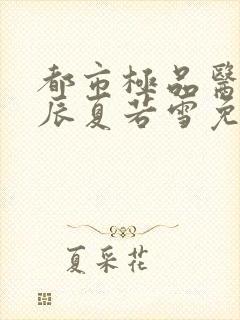 都市極品醫
辰夏若雪免
夏采花